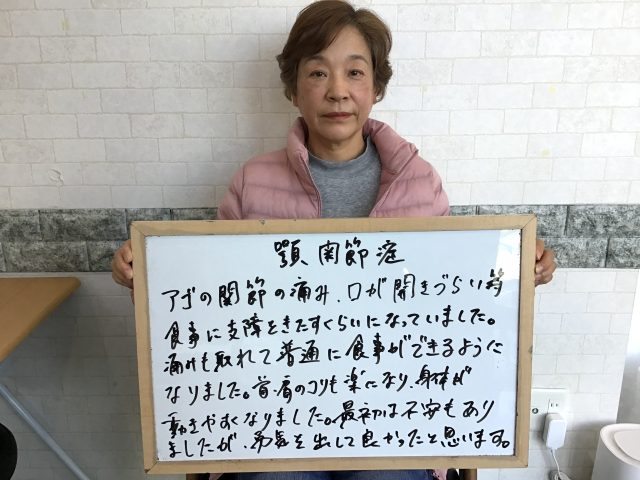 顎関節症
アゴの関節の痛み、口が開きづらい等
食事に支障をきたすくらいになっていました。
痛みも取れて普通に食事ができるように
なりました。首・肩のコリも楽になり、身体が
動きやすくなりました。最初は不安もあり
ましたが、勇気を出して良かったと思います。